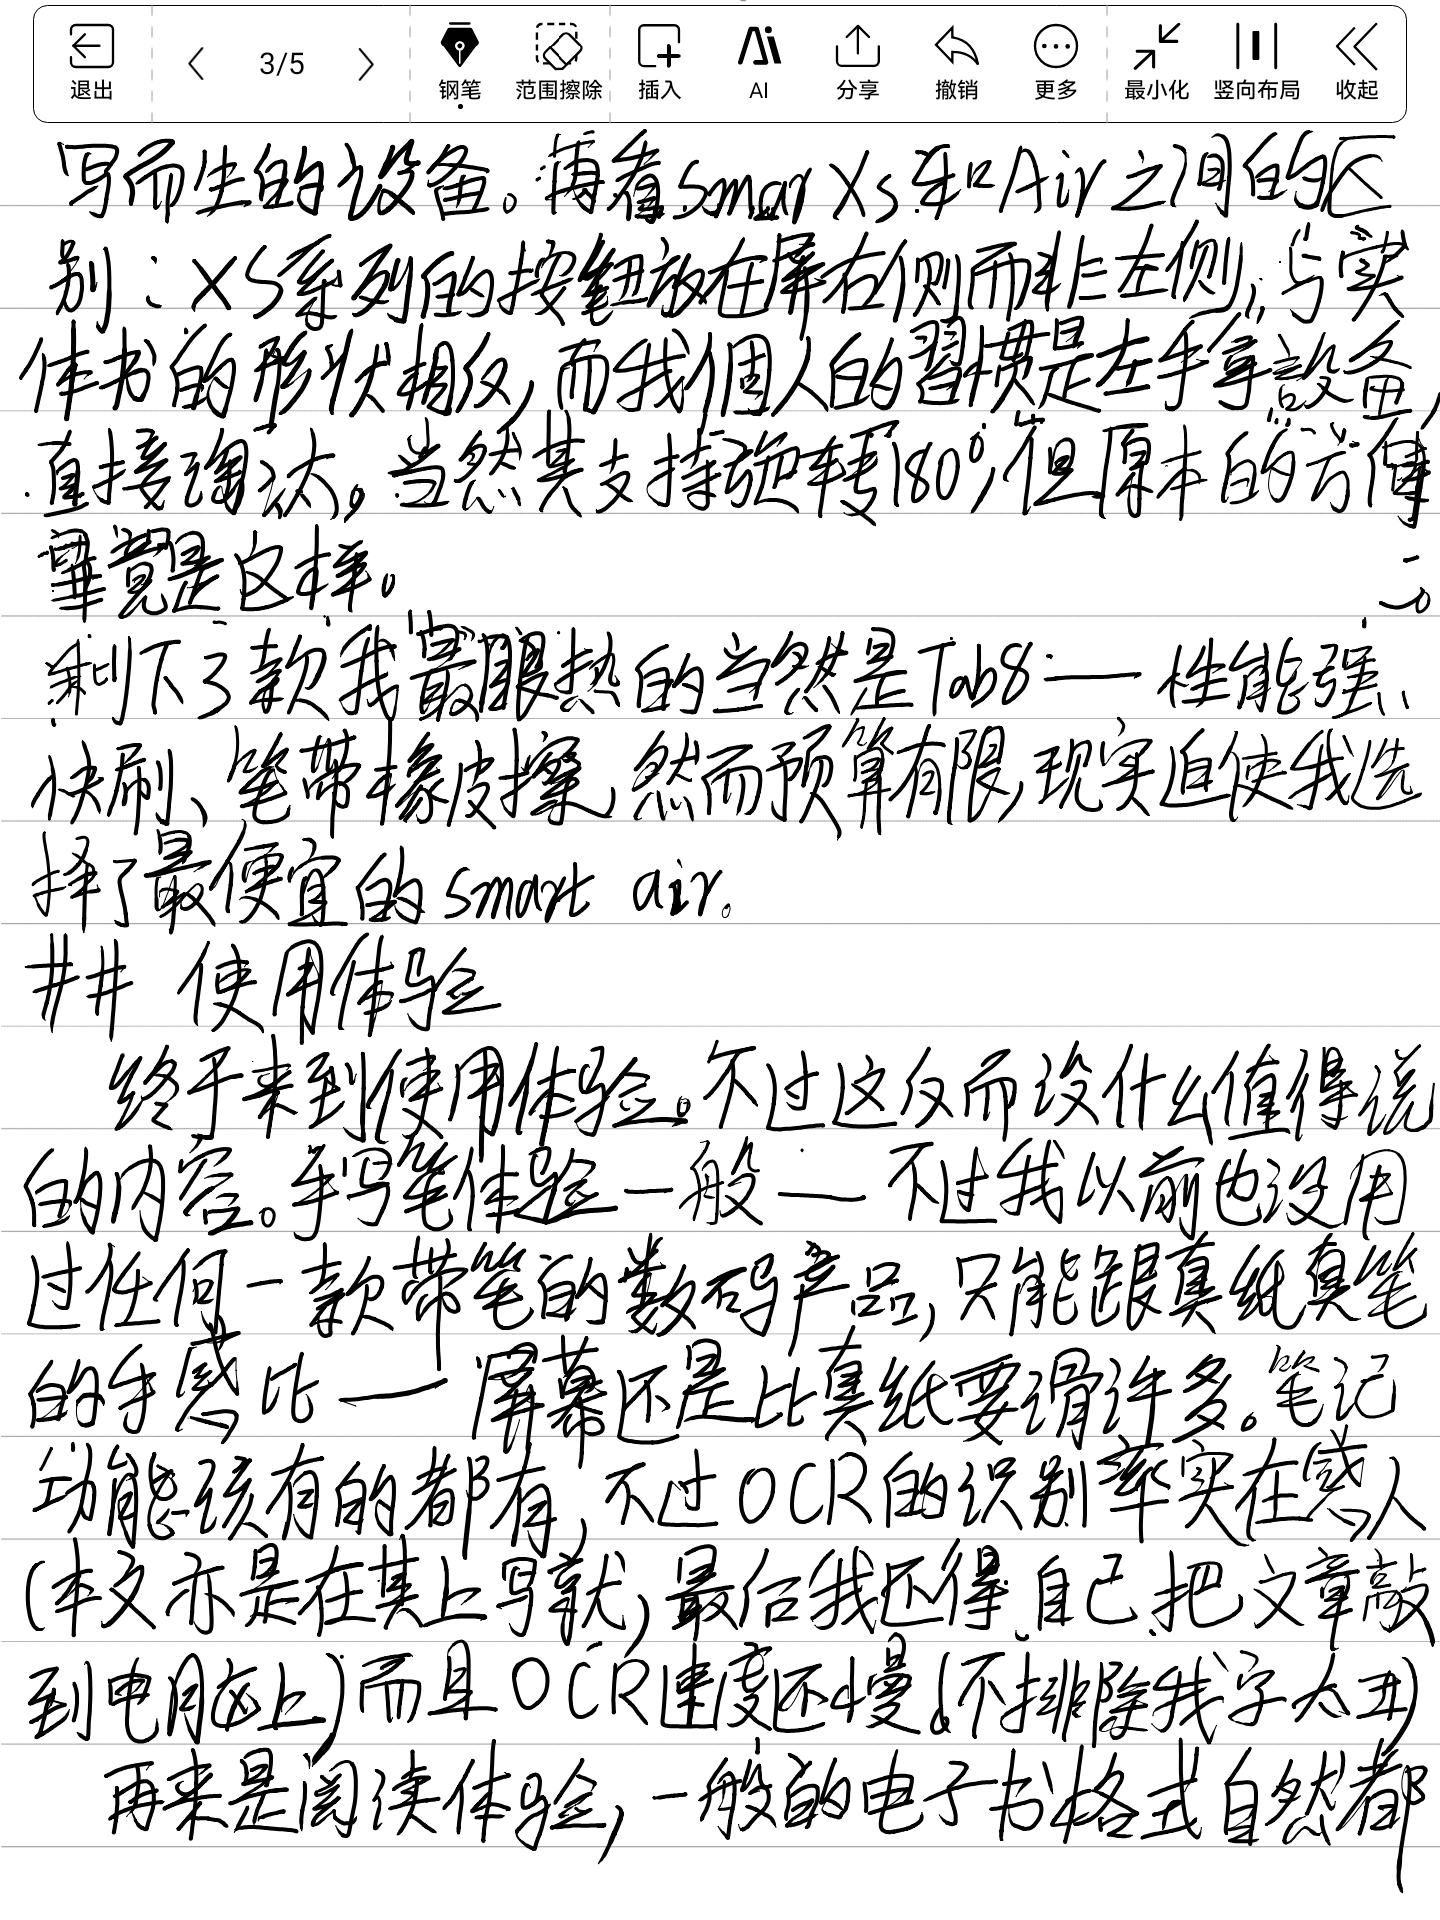 退出 3/5 钢笔 范围擦除 插入 AI 分享 撤销 更多 最小化 竖向布局 收起
写而生的设备。再看smar Xs和Air之间的区
别：XS系列的按钮放在屏右侧而非左侧，与实
体书的形状相反，而我個人的習惯是左手拿設备，
直接淘汰。当然其支持旋转180°，但原本的方便
畢竟是这样。
剩下3款我最眼热的当然是Tab8——性能强、
快刷、笔带橡皮擦，然而预算有限，现实迫使我选
择了最便宜的smart air。
## 使用体验
终于来到使用体验。不过这反而没什么值得说
的内容。手写笔体验一般——不过我以前也没用
过任何一款带笔的数码产品，只能跟真纸真笔
的手感比——屏幕还是比真纸要滑许多。笔记
功能该有的都有，不过OCR的识别率实在感人
(本文亦是在其上写就，最后我还得自己把文章敲
到电脑上)而且OCR速度还慢。(不排除我字太丑)
再来是阅读体验，一般的电子书格式自然都